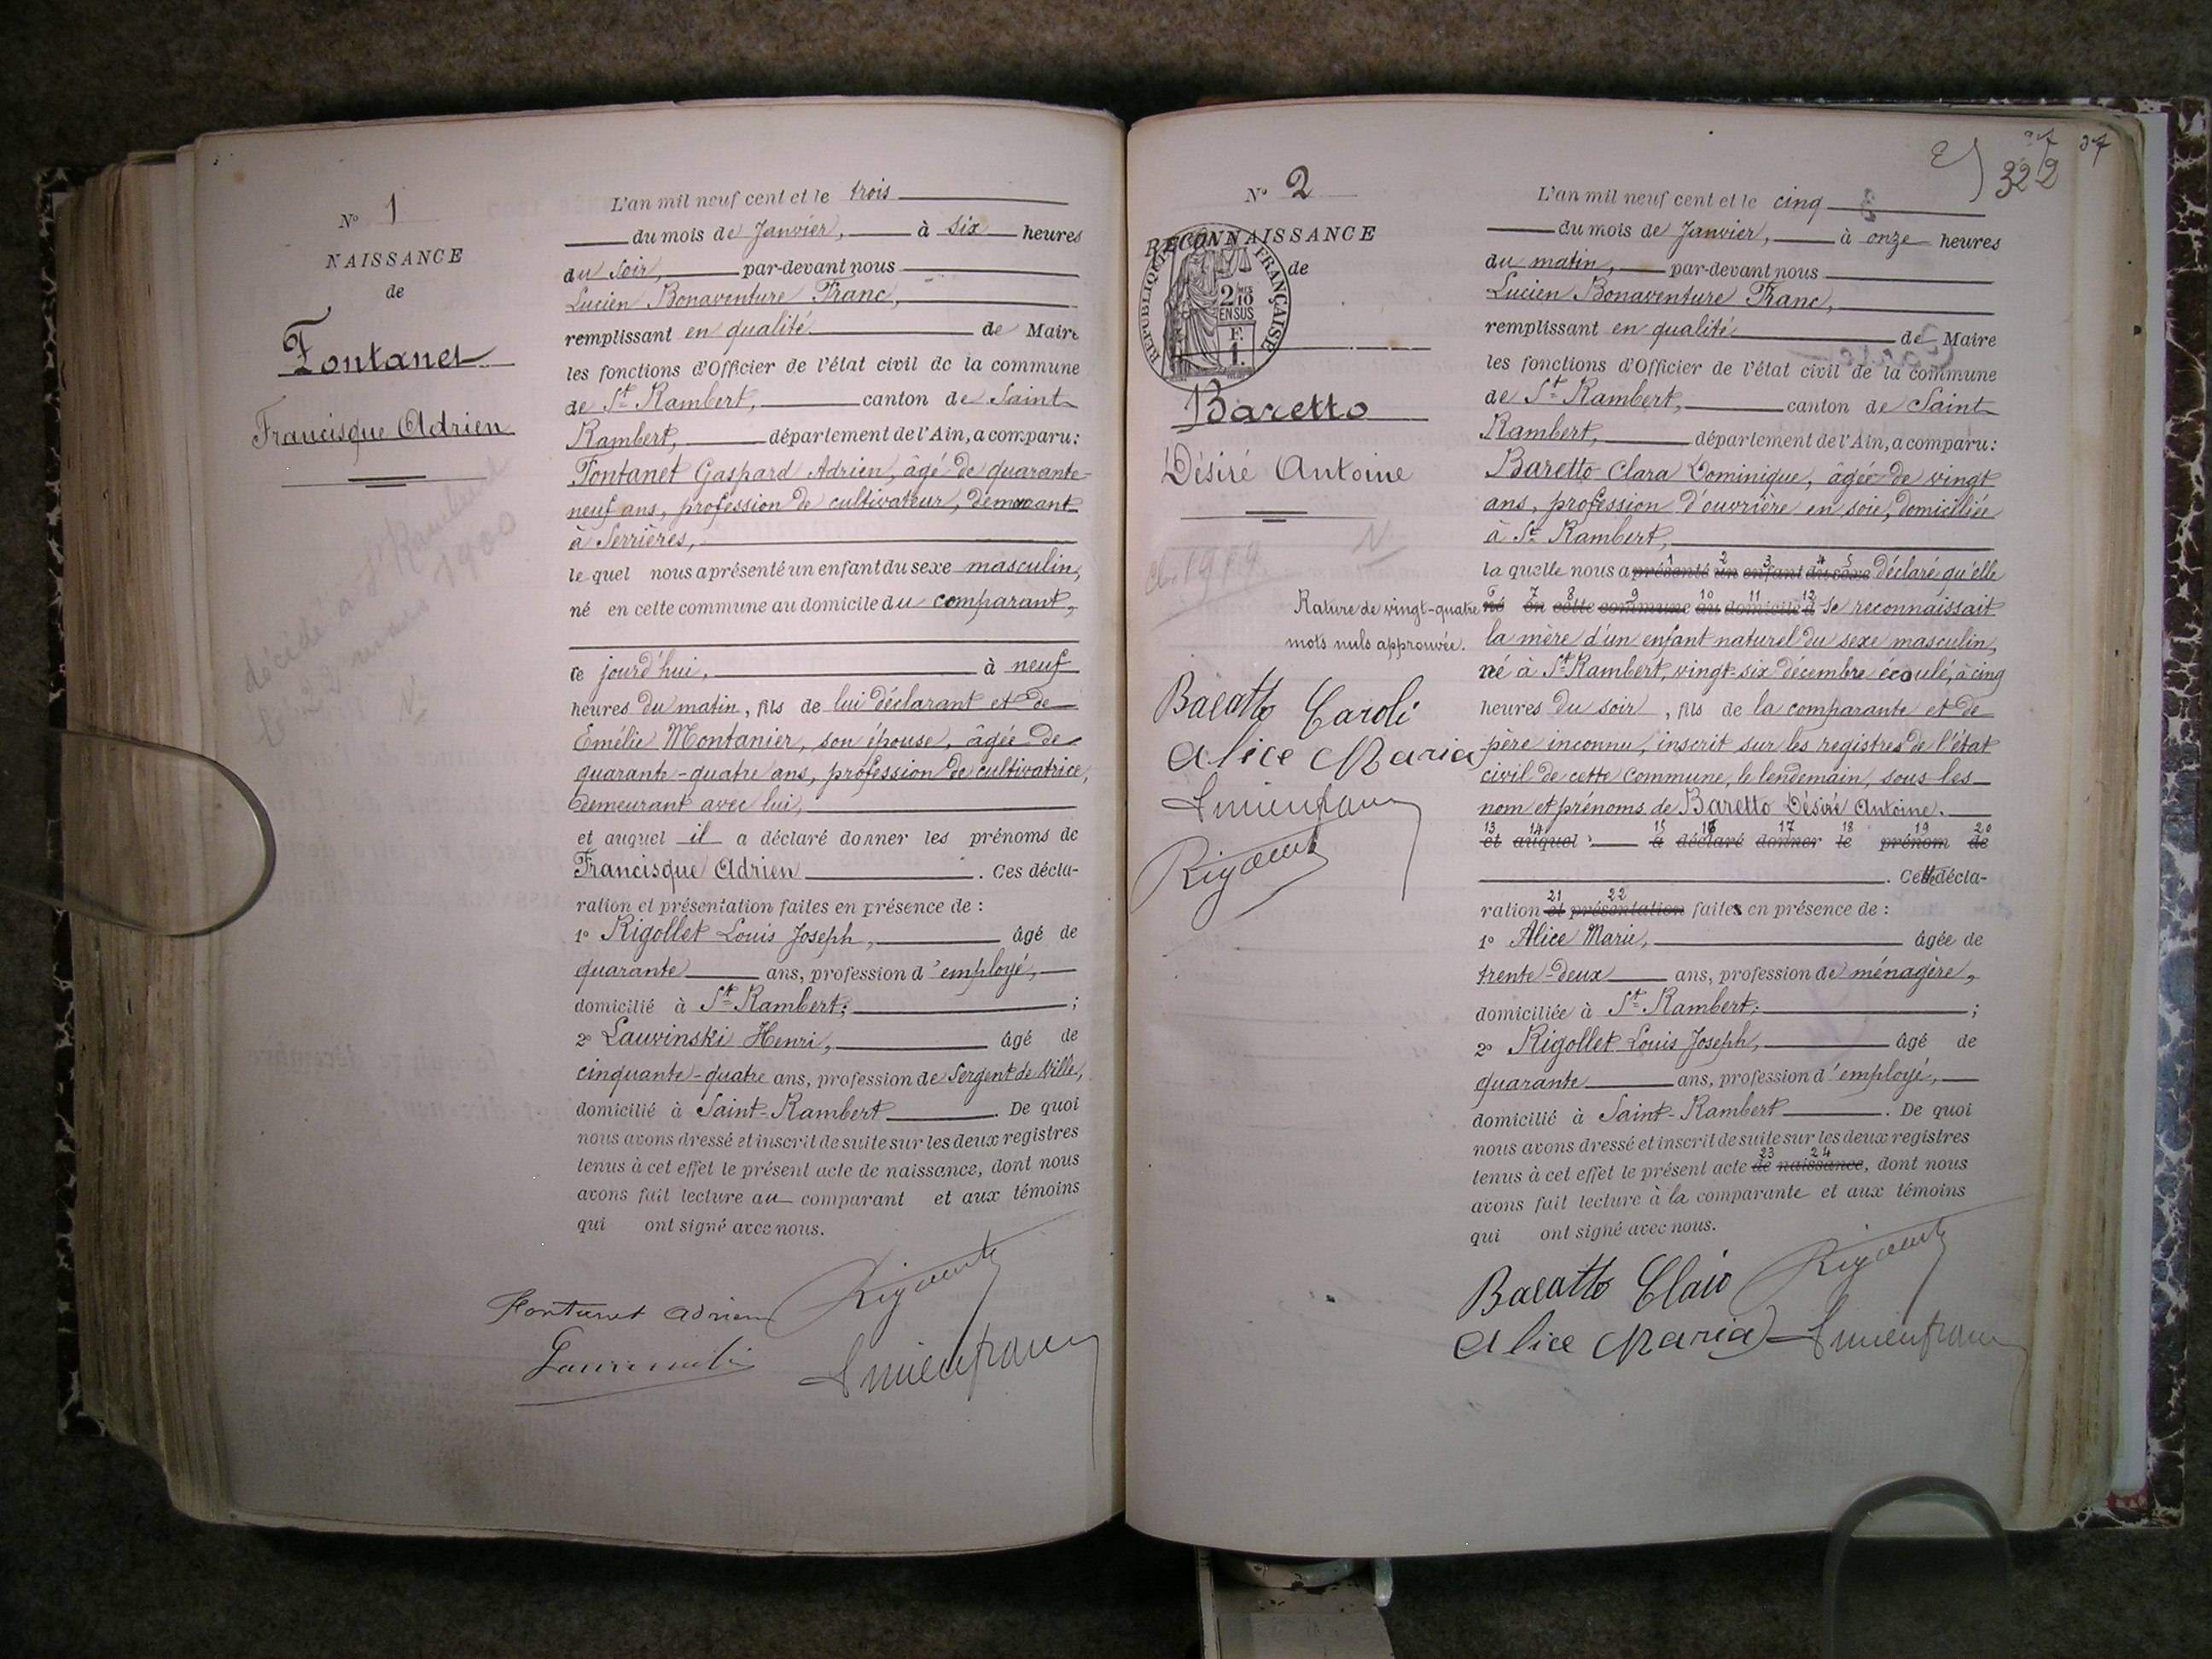 N° 1
NAISSANCE
de
Fontanet
Francisque Adrien
décédé à St Rambert
le 22 mars 1900
N
L'an mil neuf cent et le trois
du mois de Janvier, à six heures
du soir, par-devant nous
Lucien Bonaventure Franc,
remplissant en qualité de Maire
les fonctions d'Officier de l'état civil de la commune
de St Rambert, canton de Saint
Rambert, département de l'Ain, a comparu:
Fontanet Gaspard Adrien, âgé de quarante-
neuf ans, profession de cultivateur, demeurant
à Serrières,
le quel nous a présenté un enfant du sexe masculin,
né en cette commune au domicile du comparant,
ce jourd'hui, à neuf
heures du matin, fils de lui déclarant et de
Emélie Montanier, son épouse, âgée de
quarante-quatre ans, profession de cultivatrice,
demeurant avec lui,
et auquel il a déclaré donner les prénoms de
Francisque Adrien. Ces décla-
ration et présentation faites en présence de :
1° Rigollet Louis Joseph, âgé de
quarante ans, profession d'employé,
domicilié à St Rambert; ;
2° Lauvinski Henri, âgé de
cinquante-quatre ans, profession de Sergent de Ville,
domicilié à Saint-Rambert. De quoi
nous avons dressé et inscrit de suite sur les deux registres
tenus à cet effet le présent acte de naissance, dont nous
avons fait lecture au comparant et aux témoins
qui ont signé avec nous.
Fontanet Adrien
N° 2
RECONNAISSANCE
de
REPUBLIQUE FRANÇAISE
2/10
EN SUS
F.
1.
Baretto
Désiré Antoine
1919
N
Rature de vingt-quatre
mots nuls approuvée.
Baratto Caroli
Alice Maria
27 37
322
L'an mil neuf cent et le cinq
du mois de Janvier, à onze heures
du matin, par-devant nous
Lucien Bonaventure Franc,
remplissant en qualité de Maire
les fonctions d'Officier de l'état civil de la commune
de St Rambert, canton de Saint
Rambert, département de l'Ain, a comparu:
Baretto Clara Dominique, âgée de vingt
ans, profession d'ouvrière en soie, domiciliée
à St Rambert,
1 2 3 4 5
la quelle nous a présenté un enfant du sexe déclaré qu'elle
6 7 8 9 10 11 12
né en cette commune au domicile d se reconnaissait
la mère d'un enfant naturel du sexe masculin,
né à St Rambert, vingt-six décembre écoulé, à cinq
heures du soir, fils de la comparante et de
père inconnu, inscrit sur les registres de l'état
civil de cette commune, le lendemain, sous les
nom et prénoms de Baretto Désiré Antoine.
13 14 15 16 17 18 19 20
et auquel a déclaré donner le prénom de
. Cette décla-
21 22
ration et présentation faites en présence de :
1° Alice Marie, âgée de
trente-deux ans, profession de ménagère,
domiciliée à St Rambert; ;
2° Rigollet Louis Joseph, âgé de
quarante ans, profession d'employé,
domicilié à Saint-Rambert. De quoi
nous avons dressé et inscrit de suite sur les deux registres
23 24
tenus à cet effet le présent acte de naissance, dont nous
avons fait lecture à la comparante et aux témoins
qui ont signé avec nous.
Baratto Clara
Alice Maria